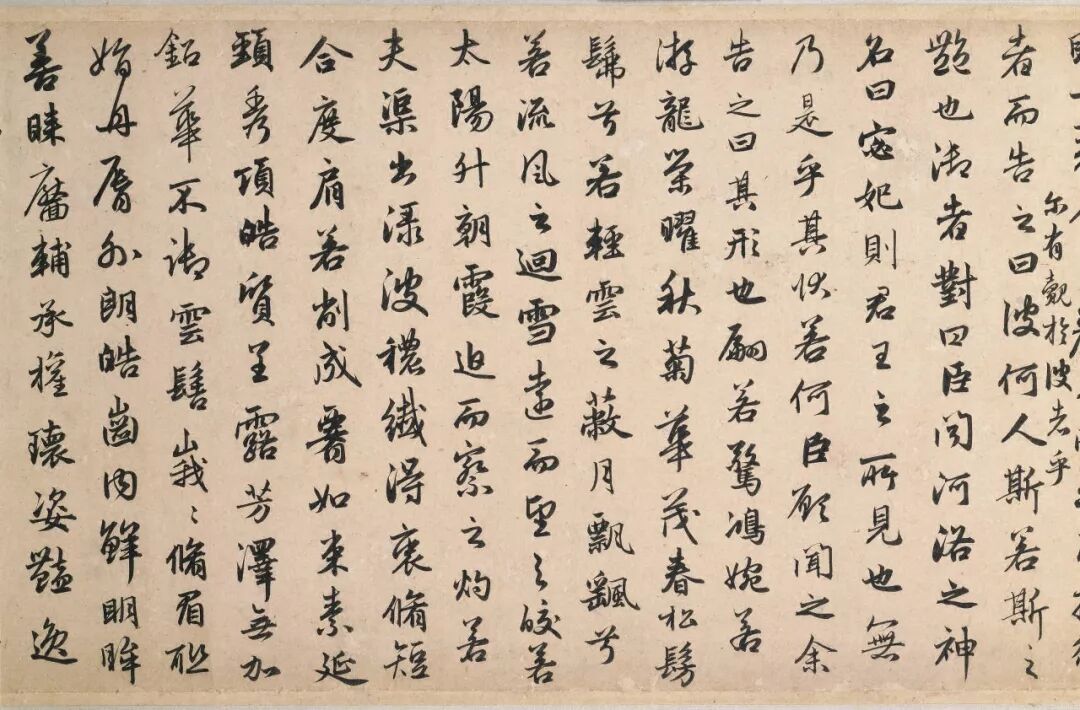 尔有覿於彼者乎
者而告之曰彼何人斯若斯之
豔也御者對曰臣聞河洛之神
名曰宓妃則君王之所見也無
乃是乎其狀若何臣願聞之余
告之曰其形也翩若驚鴻婉若
游龍榮曜秋菊華茂春松髣
髴兮若輕雲之蔽月飄颻兮
若流風之迴雪遠而望之皎若
太陽升朝霞迫而察之灼若
夫渠出淥波穠纖得衷脩短
合度肩若削成腰如束素延
頸秀項皓質呈露芳澤無加
鉛華不御雲髻峩〻脩眉聯
娟丹脣外朗皓齒内鮮明眸
善睞靨輔承權瓌姿豔逸